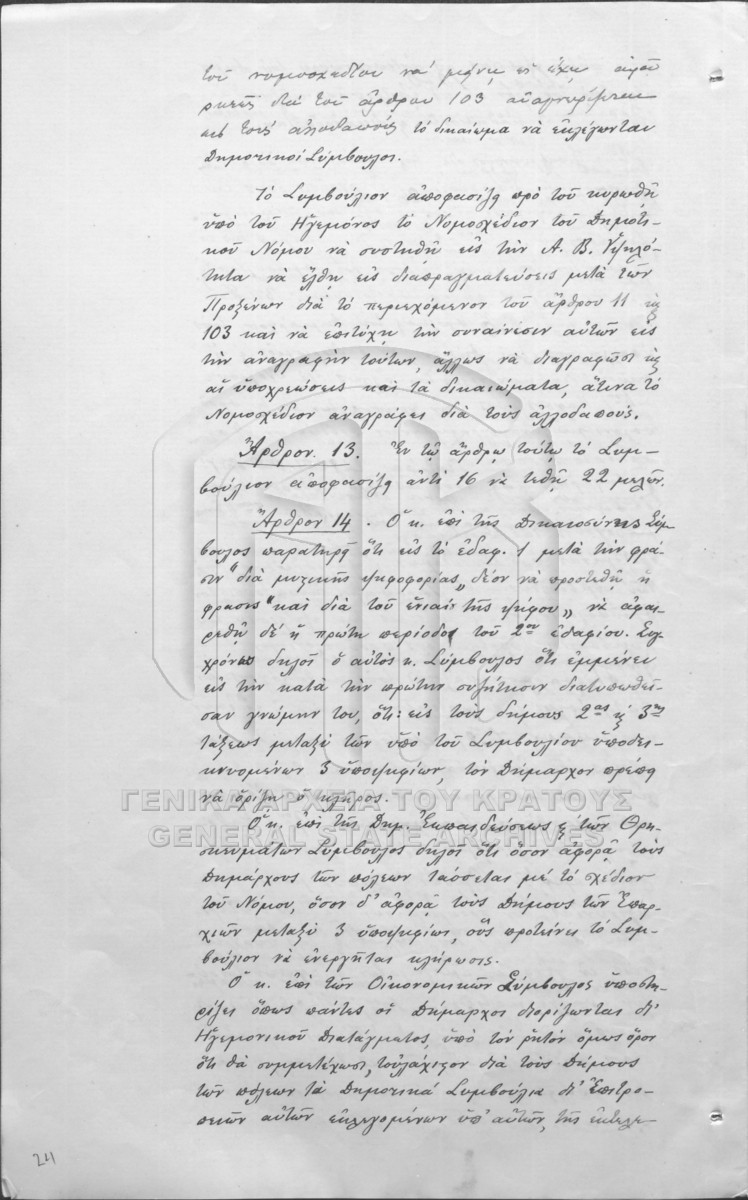 τοῦ νομοσχεδίου νὰ μείνῃ ὡς ἔχῃ, ἀφοῦ
ρητῶς διὰ τοῦ ἄρθρου 103 ἀναγνωρίζεται
εἰς τοὺς ἀλλοδαποὺς τὸ δικαίωμα νὰ ἐκλέγωνται
Δημοτικοὶ Σύμβουλοι.
Τὸ Συμβούλιον ἀποφασίζῃ πρὸ τοῦ κυρωθῇ
ὑπὸ τοῦ Ἡγεμόνος τὸ Νομοσχέδιον τοῦ Δημοτι-
κοῦ Νόμου νὰ συστηθῇ εἰς τὴν Α. Β. Ὑψηλό-
τητα νὰ ἔλθῃ εἰς διαπραγματεύσεις μετὰ τῶν
Προξένων διὰ τὸ περιεχόμενον τοῦ ἄρθρου 11 ϗ
103 καὶ νὰ ἐπιτύχῃ τὴν συναίνεσιν αὐτῶν εἰς
τὴν ἀναγραφὴν τούτων, ἄλλως νὰ διαγραφῶσι ϗ
αἱ ὑποχρεώσεις καὶ τὰ δικαιώματα, ἅτινα τὸ
Νομοσχέδιον ἀναγράφει διὰ τοὺς ἀλλοδαπούς.
Ἄρθρον 13. Ἐν τῷ ἄρθρῳ τούτῳ τὸ Συμ-
βούλιον ἀποφασίζῃ ἀντὶ 16 νὰ τεθῇ 22 μελῶν.
Ἄρθρον 14. Ὁ κ. ἐπὶ τῆς Δικαιοσύνης Σύμ-
βουλος παρατηρῇ ὅτι εἰς τὸ ἐδάφ. 1 μετὰ τὴν φρά-
σιν "διὰ μυστικῆς ψηφοφορίας„ δέον νὰ προστεθῇ ἡ
φράσις "καὶ διὰ τοῦ ἑνιαίου τῆς ψήφου„ νὰ ἀφαι-
ρεθῇ δὲ ἡ πρώτη περίοδος τοῦ 2ου ἐδαφίου. Συγ-
χρόνως δηλοῖ ὁ αὐτὸς κ. Σύμβουλος ὅτι ἐμμένει
εἰς τὴν κατὰ τὴν πρώτην συζήτησιν διατυπωθεῖ-
σαν γνώμην του, ὅτι: εἰς τοὺς δήμους 2ας ϗ 3ης
τάξεως μεταξὺ τῶν ὑπὸ τοῦ Συμβουλίου ὑποδει-
κνυομένων 3 ὑποψηφίων, τὸν Δήμαρχον πρέπῃ
νὰ ὁρίζῃ ὁ κλῆρος.
ΓΕΝΙΚΑ ΑΡΧΕΙΑ ΤΟΥ ΚΡΑΤΟΥΣ
GENERAL STATE ARCHIVES
Ὁ κ. ἐπὶ τῆς Δημ. Ἐκπαιδεύσεως ϗ τῶν Θρη-
σκευμάτων Σύμβουλος δηλοῖ ὅτι ὅσον ἀφορᾷ τοὺς
Δημάρχους τῶν πόλεων τάσσεται μὲ τὸ σχέδιον
τοῦ Νόμου, ὅσον δ' ἀφορᾷ τοὺς Δήμους τῶν Ἐπαρ-
χιῶν μεταξὺ 3 ὑποψηφίων, οὓς προτείνει τὸ Συμ-
βούλιον νὰ ἐνεργῆται κλήρωσις.
Ὁ κ. ἐπὶ τῶν Οἰκονομικῶν Σύμβουλος ὑποστη-
ρίζει ὅπως πάντες οἱ Δήμαρχοι διορίζωνται δι'
Ἡγεμονικοῦ Διατάγματος, ὑπὸ τὸν ῥητὸν ὅμως ὅρον
ὅτι θὰ συμμετέχωσι, τοὐλάχιστον διὰ τοὺς Δήμους
τῶν πόλεων τὰ Δημοτικὰ Συμβούλια δι' Ἐπιτρο-
πειῶν αὐτῶν ἐκλεγομένων ὑπ' αὐτῶν, τῆς ἐκτελε-
24